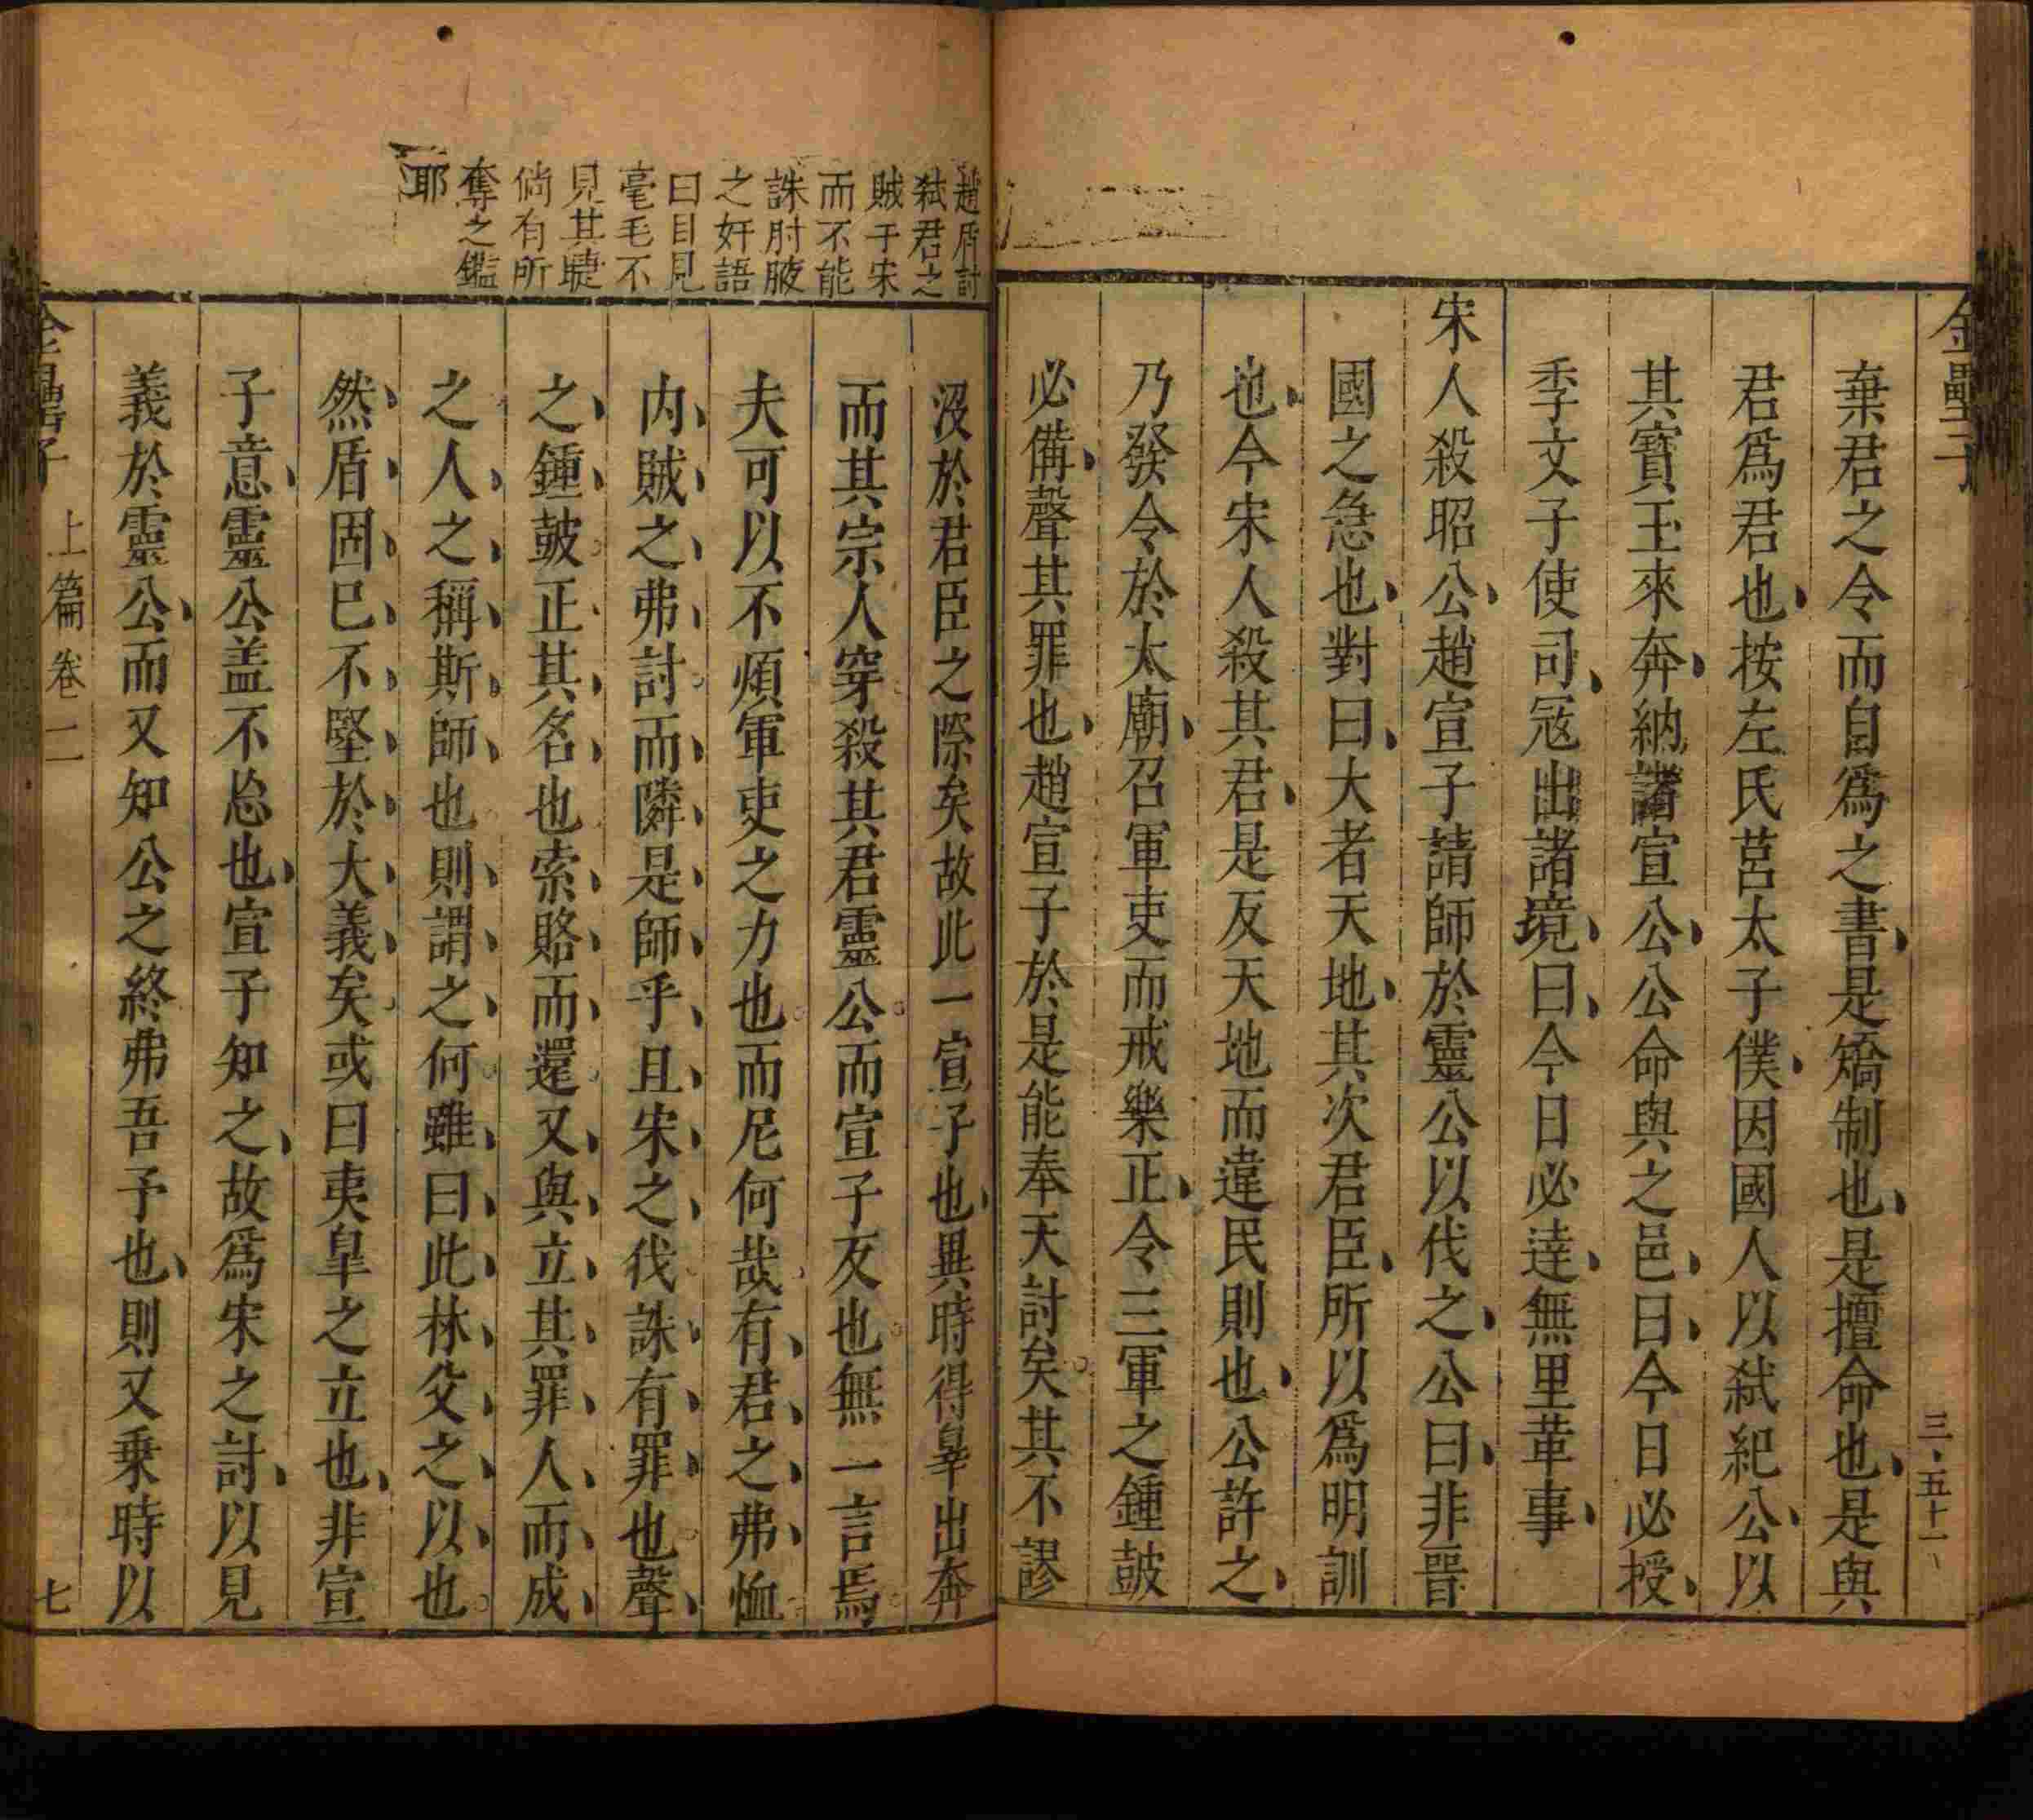 金罍子
三・五十一
棄君之令而自爲之書是矯制也是擅命也是與
君爲君也按左氏莒太子僕因國人以弑紀公以
其寳玉來奔納諸宣公公命與之邑曰今日必授
季文子使司冦出諸境曰今日必逹無里革事
宋人殺昭公趙宣子請師於靈公以伐之公曰非晋
國之急也對曰大者天地其次君臣所以爲明訓
也今宋人殺其君是反天地而違民則也公許之
乃發令於太廟召軍吏而戒樂正令三軍之鍾皷
必備聲其罪也趙宣子於是能奉天討矣其不謬
趙盾討
弑君之
賊于宋
而不能
誅肘腋
之奸語
曰目見
毫毛不
見其睫
倘有所
奪之鑑
耶
沒於君臣之際矣故此一宣子也異時得辠出奔
而其宗人穿殺其君靈公而宣子反也無一言焉
夫可以不煩軍吏之力也而尼何哉有君之弗恤
内賊之弗討而隣是師乎且宋之伐誅有罪也聲
之鍾皷正其名也索賂而還又與立其罪人而成
之人之稱斯師也則謂之何雖曰此林父之以也
然盾固已不堅於大義矣或曰夷臯之立也非宣
子意靈公盖不忩也宣子知之故爲宋之討以見
義於靈公而又知公之終弗吾予也則又乗時以
金罍子
上篇卷二
七